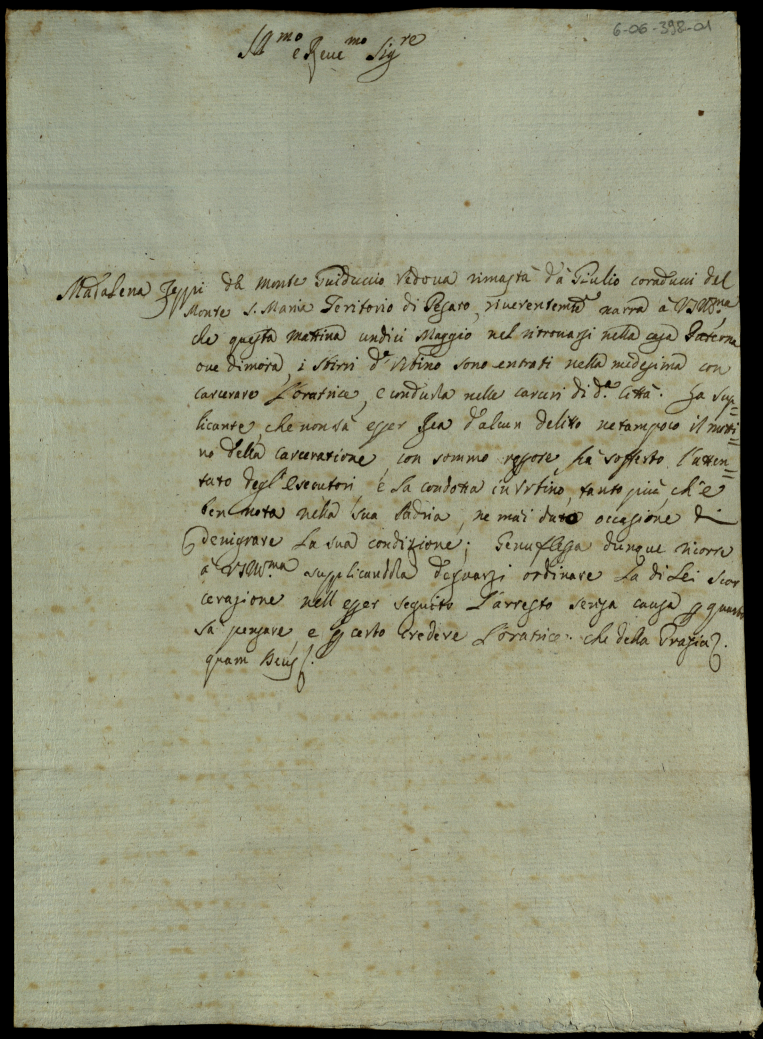 6-06-398-01
Ill.mo e Reue.mo Sig.re
Madalena Zeppi da Monte Guiduccio Vedoua rimasta da Giulio coraducci del
Monte S. Maria Teritorio di Pesaro, riuerentemte narra à V.S.Ill.ma
che questa mattina undici Maggio nel ritrouarsi nella casa Paterna
oue dimora, i Sbirri d'Vrbino sono entrati nella medesima con
carcerare l'oratrice, e condurla nelle carceri di d.a Città. La sup=
licante, che non sà esser Rea d'alcun delitto ne tampoco il moti=
uo della carcerazione con sommo rossore hà sofferto l'atten=
tato degl'Esecutori e la condotta in Vrbino, tanto più ch'è
ben nota nella sua Padria, ne mai dato occasione di
denigrare la sua condizione; Genuflessa dunque ricorre
à V.S.Ill.ma supplicandola degnarsi ordinare la di Lei scar
cerazione nell'esser seguito l'arresto senza causa p quanto
sà pensare, e p certo credere l'oratrice. che della Grazia.
quam Deus.